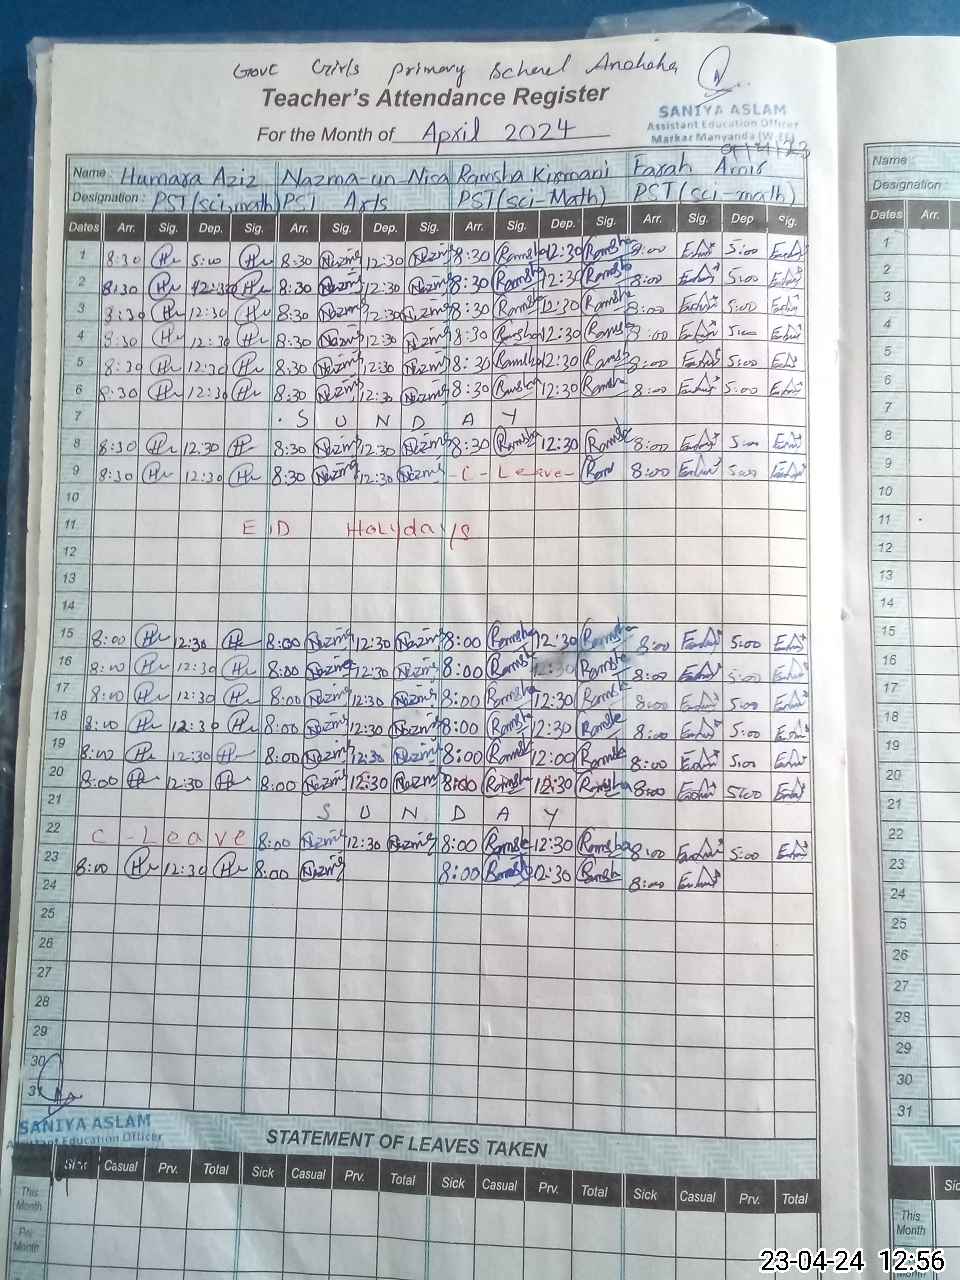 Govt Girls Primary School
Teacher's Attendance Register
SANIYA ASLAM
Assistant Education Officer
Markaz Manyanda (W-EE)
For the Month of April 2024
Name : Humara Aziz Nazma-un-Nisa Ramsha Kirmani Farah
Designation : PST(sci-math) PST Arts PST(sci-Math) PST(sci-math)
Dates Arr. Sig. Dep. Sig. Arr. Sig. Dep. Sig. Arr. Sig. Dep. Sig. Arr. Sig. Dep Sig.
1 8:30 5:00 8:30 Nazma 12:30 Nazma 8:30 Ramsha 12:30 Ramsha 8:00 5:00
2 8:30 12:30 8:30 Nazma 12:30 Nazma 8:30 Ramsha 12:30 Ramsha 8:00 5:00
3 8:30 12:30 8:30 Nazma 12:30 Nazma 8:30 Ramsha 12:30 Ramsha 8:00 5:00
4 8:30 12:30 8:30 Nazma 12:30 Nazma 8:30 Ramsha 12:30 Ramsha 8:00 5:00
5 8:30 12:30 8:30 Nazma 12:30 Nazma 8:30 Ramsha 12:30 Ramsha 8:00 5:00
6 8:30 12:30 8:30 Nazma 12:30 Nazma 8:30 Ramsha 12:30 Ramsha 8:00 5:00
7 S U N D A Y
8 8:30 12:30 8:30 Nazma 12:30 Nazma 8:30 Ramsha 12:30 Ramsha 8:00 5:00
9 8:30 12:30 8:30 Nazma 12:30 Nazma - C - Leave - Ram 8:00 5:00
10
11 EID Holydays
12
13
14
15 8:00 12:30 8:00 Nazma 12:30 Nazma 8:00 Ramsha 12:30 Ramsha 8:00 5:00
16 8:00 12:30 8:00 Nazma 12:30 Nazma 8:00 Ramsha 12:30 Ramsha 8:00 5:00
17 8:00 12:30 8:00 Nazma 12:30 Nazma 8:00 Ramsha 12:30 Ramsha 8:00 5:00
18 8:00 12:30 8:00 Nazma 12:30 Nazma 8:00 Ramsha 12:30 Ramsha 8:00 5:00
19 8:00 12:30 8:00 Nazma 12:30 Nazma 8:00 Ramsha 12:00 Ramsha 8:00 5:00
20 8:00 12:30 8:00 Nazma 12:30 Nazma 8:00 Ramsha 12:30 Ramsha 8:00 5:00
21 S U N D A Y
22 C - Leave 8:00 Nazma 12:30 Nazma 8:00 Ramsha 12:30 Ramsha 8:00 5:00
23 8:00 12:30 8:00 Nazma 8:00 Ramsha 12:30 Ramsha 8:00
24
25
26
27
28
29
30
31
SANIYA ASLAM
Assistant Education Officer
STATEMENT OF LEAVES TAKEN
Sick Casual Prv. Total Sick Casual Prv. Total Sick Casual Prv. Total Sick Casual Prv. Total
This Month
Pre Month
Name :
Designation :
Dates Arr.
1
2
3
4
5
6
7
8
9
10
11
12
13
14
15
16
17
18
19
20
21
22
23
24
25
26
27
28
29
30
31
Sic
This Month
23-04-24 12:56